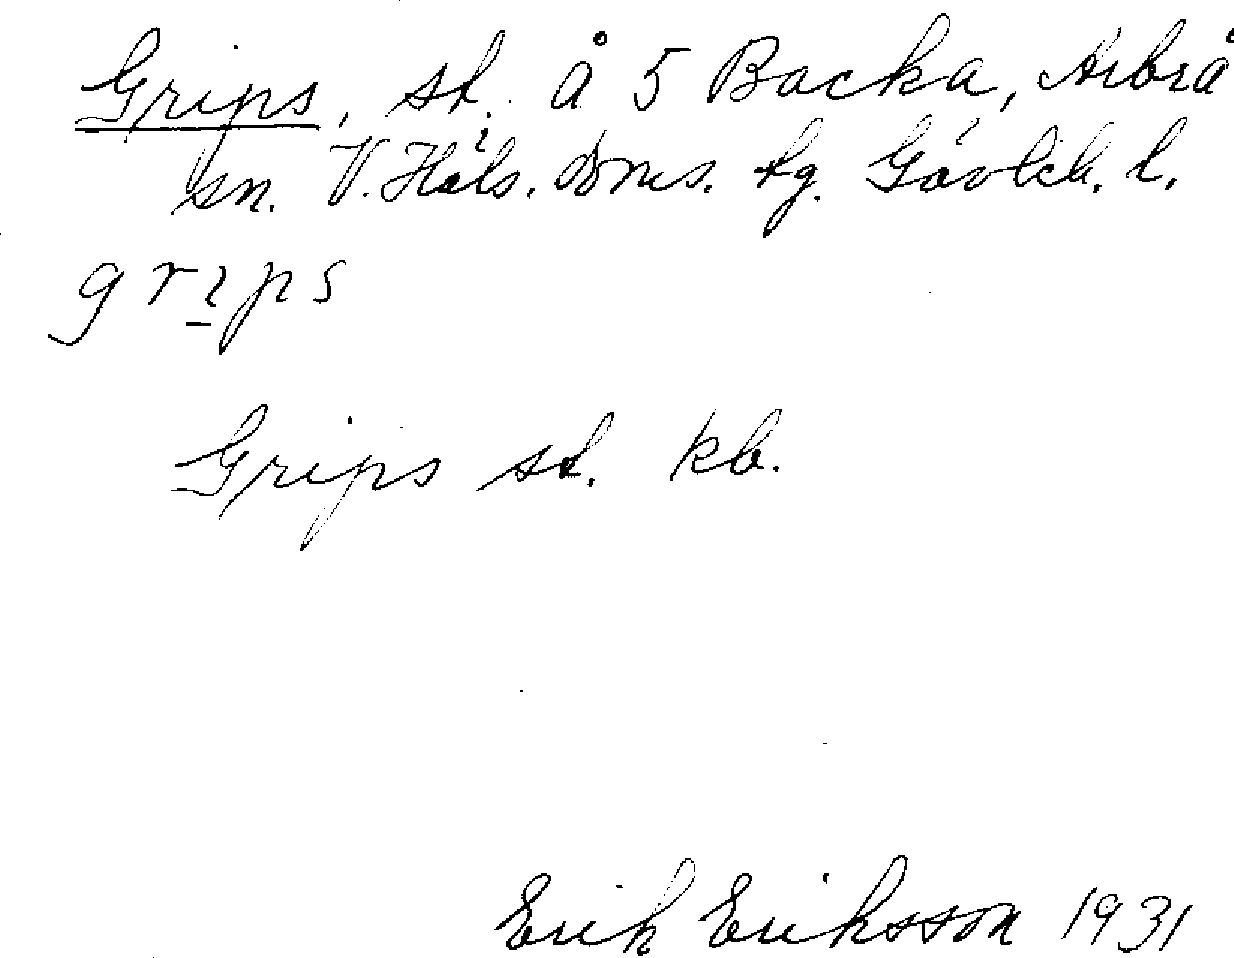 Grips, st. å 5 Backa, Arbrå
sn. V. Häls. doms. tg. Gävleb. l.
grıp̱s
Grips st. kb.
Erik Eriksson 1931